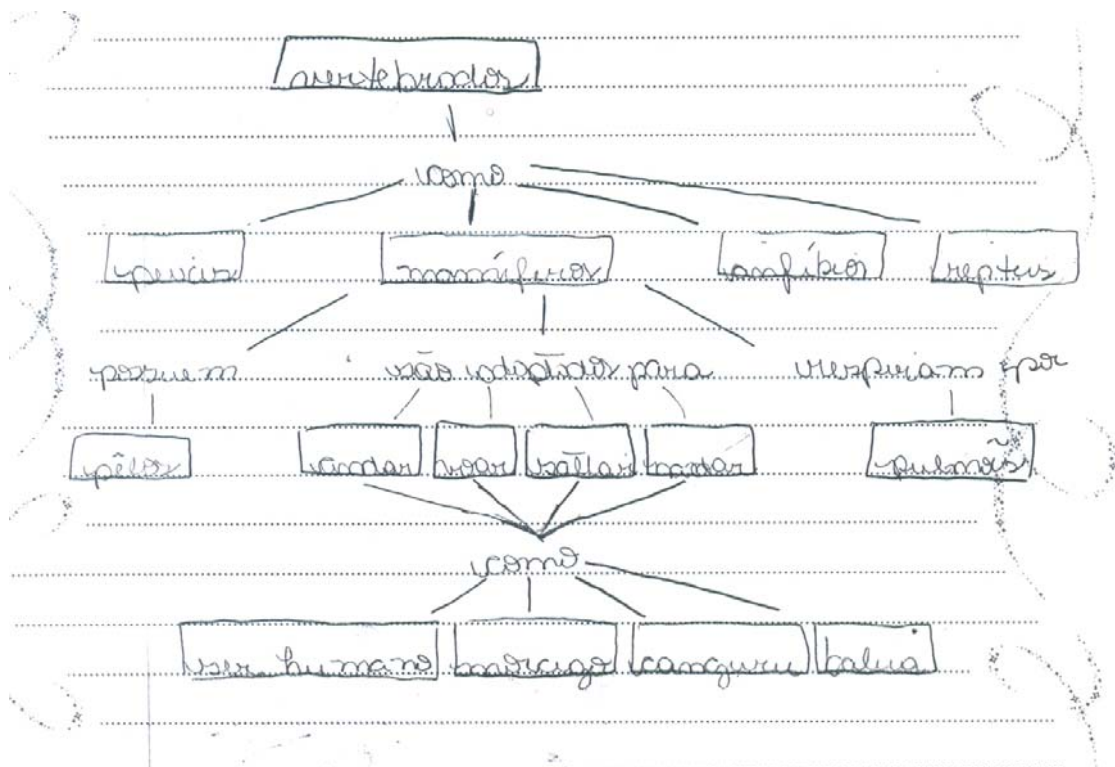 vertebrados
como
peixes mamíferos anfíbios repteis
possuem são adaptados para respiram por
pêlos andar voar saltar nadar pulmões
como
ser humano morcego canguru baleia